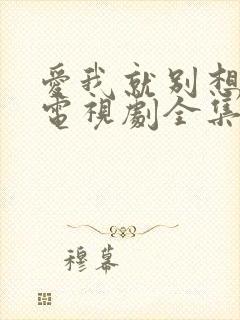 愛我就別想
電視劇全集
穆幕